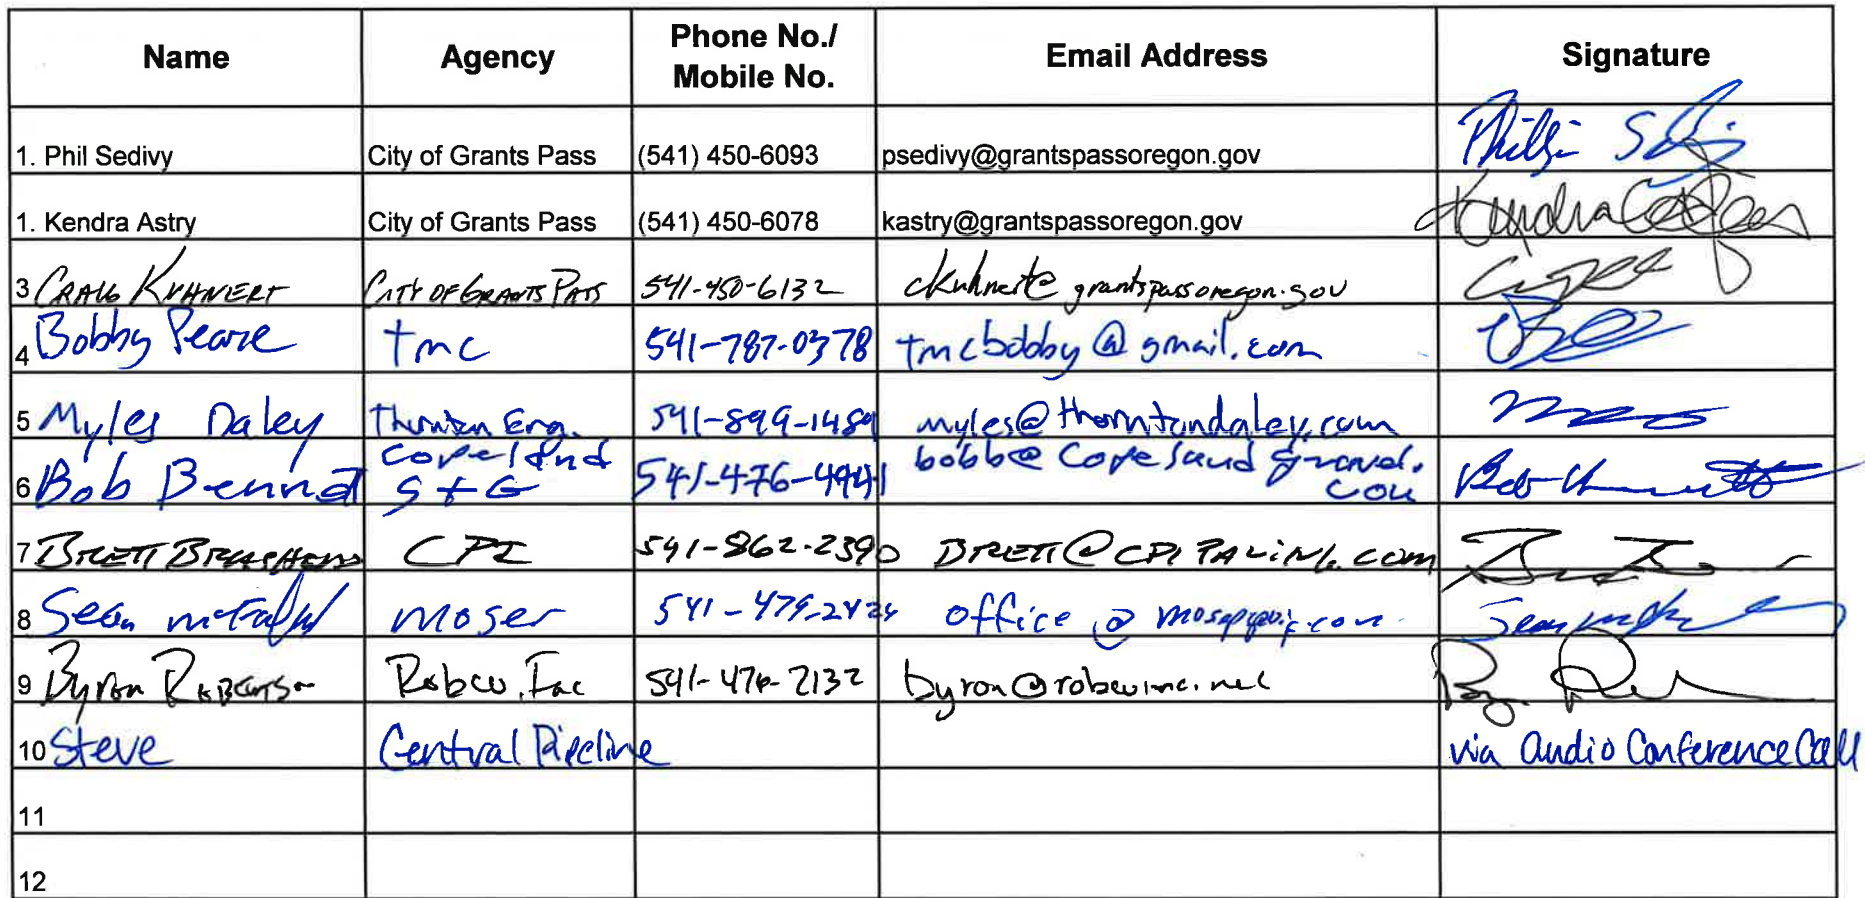 Name Agency Phone No./ Mobile No. Email Address Signature
1. Phil Sedivy City of Grants Pass (541) 450-6093 psedivy@grantspassoregon.gov
1. Kendra Astry City of Grants Pass (541) 450-6078 kastry@grantspassoregon.gov
3 CRAIG KUHNERT CITY OF GRANTS PASS 541-450-6132 ckuhnert@grantspassoregon.gov
4 Bobby Pearce tmc 541-787-0378 tmcbobby@gmail.com
5 Myles Daley Thornton Eng. 541-899-1489 myles@thorntondaley.com
6 Bob Bennett Copeland S+G 541-476-4441 bobb@copelandsand gravel.com
7 BRETT CPI 541-862-2390 BRETT@CPIPAVING.COM
8 Sean moser 541-479-2424 office@
9 Byron Robertson Robco, Inc 541-476-2132 byron@robcoinc.net
10 Steve Central Pipeline via audio Conference Call
11
12